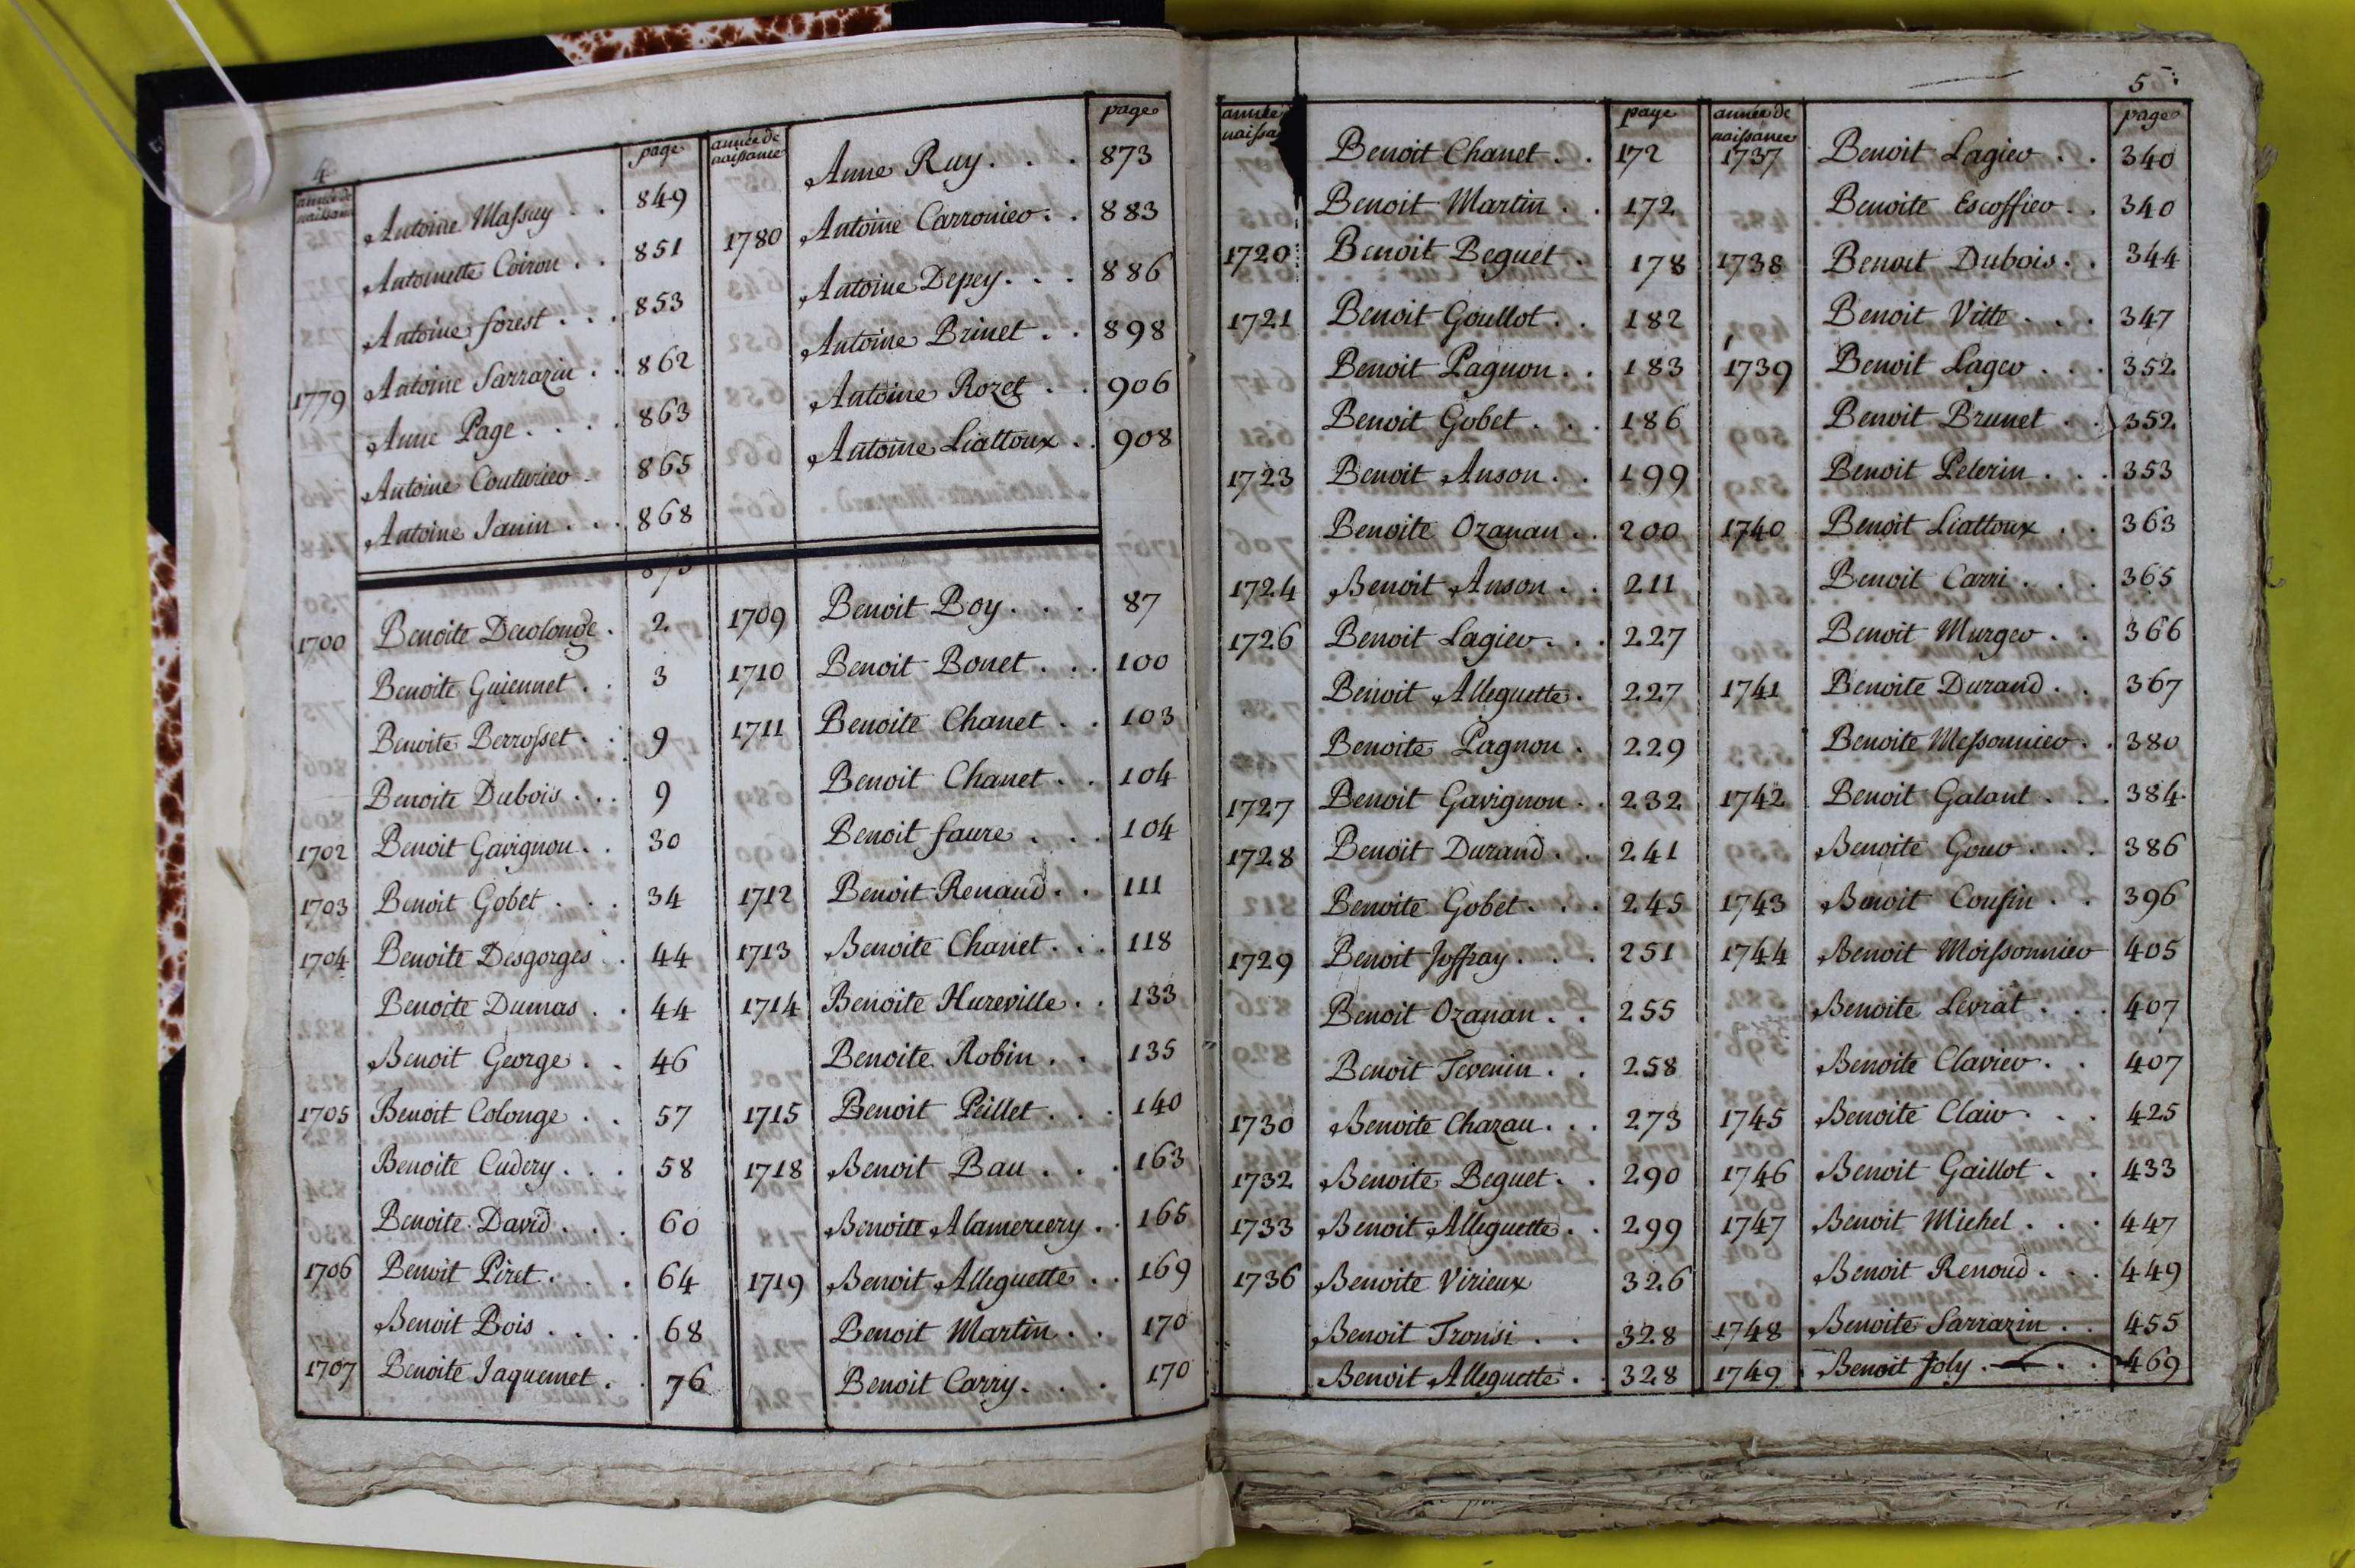 4
année de naissance
page
Antoine Massuy . . 849
Antoinette Coiron . . 851
Antoine forest . . . 853
1779 Antoine Sarrazin . . 862
Anne Page . . . . 863
Antoine Couturier . 865
Antoine Janin . . . 868
1700 Benoite Decolonge . 2
Benoite Guiennet . . 3
Benoite Berrosset . . 9
Benoite Dubois . . . 9
1702 Benoit Gavignon . . 30
1703 Benoit Gobet . . . 34
1704 Benoite Desgorges . . 44
Benoite Dumas . . 44
Benoit George . . 46
1705 Benoit Colonge . . 57
Benoite Cudery . . . 58
Benoite David . . . 60
1706 Benoit Piret . . . . 64
Benoit Bois . . . . 68
1707 Benoite Jaquemet . . 76
année de naissance
page
Anne Ruy . . . 873
1780 Antoine Carronier . . 883
Antoine Depey . . . 886
Antoine Brinet . . 898
Antoine Rozet . . 906
Antoine Liattoux . . 908
1709 Benoit Boy . . . 87
1710 Benoit Bonet . . . 100
1711 Benoite Chanet . . 103
Benoit Chanet . . 104
Benoit faure . . . 104
1712 Benoit Renaud . . 111
1713 Benoite Chanet . . . 118
1714 Benoite Hureville . . 133
Benoite Robin . . 135
1715 Benoit Peillet . . . 140
1718 Benoit Bau . . . 163
Benoite Alamercery . . 165
1719 Benoit Alleguette . . 169
Benoit Martin . . 170
Benoit Carry . . . 170
5
année
page
Benoit Chanet . . 172
Benoit Martin . . 172
1720 Benoit Beguet . 178
1721 Benoit Goullot . . 182
Benoit Pagnon . . 183
Benoit Gobet . . . 186
1723 Benoit Anson . . 199
Benoite Ozanan . . 200
1724 Benoit Anson . . 211
1726 Benoit Lagier . . . 227
Benoit Alleguette . 227
Benoite Pagnon . 229
1727 Benoit Gavignon . . 232
1728 Benoit Durand . . 241
Benoite Gobet . . . 245
1729 Benoit Joffray . . . 251
Benoit Ozanan . . 255
Benoit Tevenin . . 258
1730 Benoite Chazau . . . 273
1732 Benoite Beguet . . 290
1733 Benoit Alleguette . . 299
1736 Benoite Virieux 326
Benoit Tronsi . . 328
Benoit Alleguette . . 328
année de naissance
page
1737 Benoit Lagier . . 340
Benoite Escoffier . . 340
1738 Benoit Dubois . . 344
Benoit Vitte . . . 347
1739 Benoit Lager . . . 352
Benoit Brunet . . 352
Benoit Pelerin . . . 353
1740 Benoit Liattoux . . 363
Benoit Carri . . . 365
Benoit Murger . . 366
1741 Benoite Durand . . 367
Benoite Messonnier . . 380
1742 Benoit Galant . . . 384
Benoite Gour . . . 386
1743 Benoit Cousin . . 396
1744 Benoit Moissonnier 405
Benoite Levrat . . . 407
Benoite Clavier . . 407
1745 Benoite Clair . . . 425
1746 Benoit Gaillot . . 433
1747 Benoit Michel . . . 447
Benoit Renoud . . . 449
1748 Benoite Sarrazin . . 455
1749 Benoit Joly . . . 469